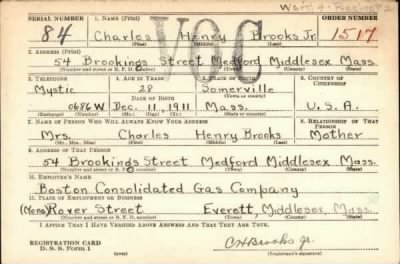 Ward 4 - Precinct 2
SERIAL NUMBER 1. NAME (Print) ORDER NUMBER
84 Charles Henry Brooks Jr. 1517
(First) (Middle) (Last)
VOC
2. ADDRESS (Print)
54 Brookings Street Medford Middlesex Mass.
(Number and street or R. F. D. number) (Town) (County) (State)
3. TELEPHONE 4. AGE IN YEARS 5. PLACE OF BIRTH 6. COUNTRY OF CITIZENSHIP
Mystic 28 Somerville
DATE OF BIRTH (Town or county)
0686W Dec. 11, 1911 Mass. U.S.A.
(Exchange) (Number) (Mo.) (Day) (Yr.) (State or country)
7. NAME OF PERSON WHO WILL ALWAYS KNOW YOUR ADDRESS 8. RELATIONSHIP OF THAT PERSON
Mrs. Charles Henry Brooks Mother
(Mr., Mrs., Miss) (First) (Middle) (Last)
9. ADDRESS OF THAT PERSON
54 Brookings Street Medford Middlesex Mass.
(Number and street or R. F. D. number) (Town) (County) (State)
10. EMPLOYER'S NAME
Boston Consolidated Gas Company
11. PLACE OF EMPLOYMENT OR BUSINESS
(None) Rover Street Everett, Middlesex, Mass.
(Number and street or R. F. D. number) (Town) (County) (State)
I AFFIRM THAT I HAVE VERIFIED ABOVE ANSWERS AND THAT THEY ARE TRUE.
REGISTRATION CARD
D. S. S. Form 1 (over) C H Brooks Jr.
(Registrant's signature)